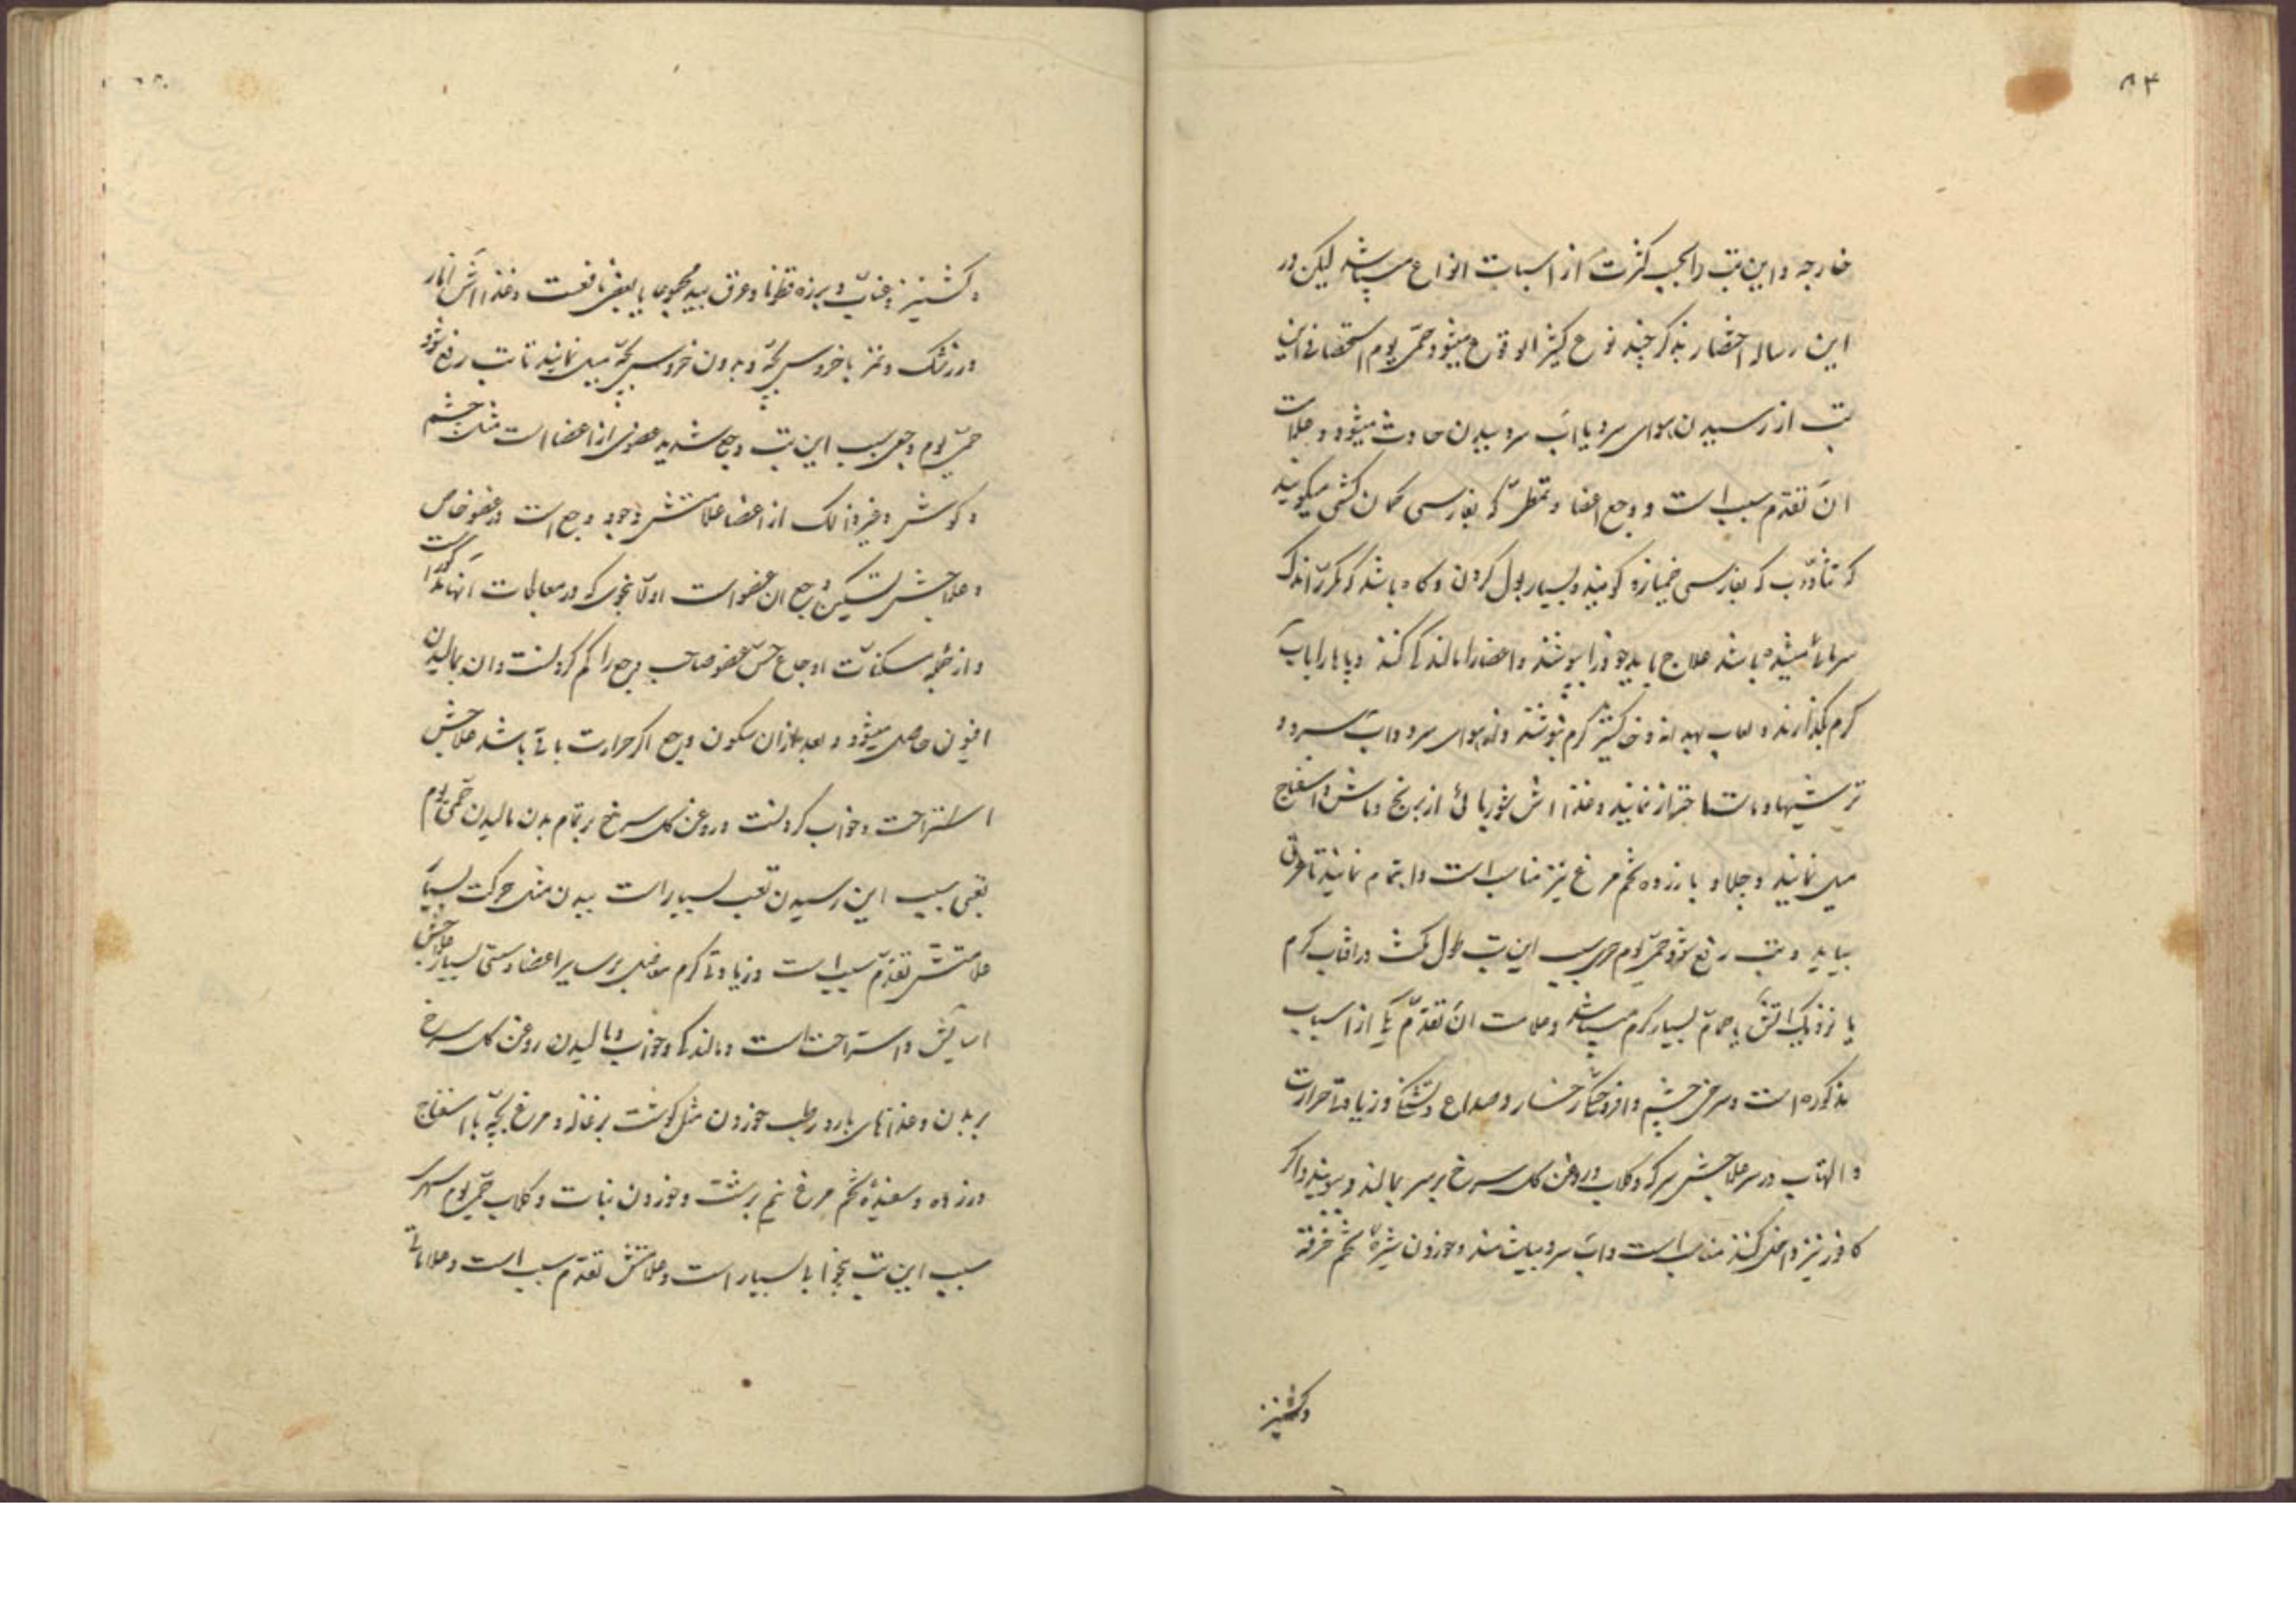 ۸۴
خارجه و این تب را بجهت کثرت از اسباب انواع میباشد لیکن در
این رساله اختصار بذکر چند نوع کثیر الوقوع میشود حمّی یوم استحصافی این
تب از رسیدن هوای سرد یا آب سرد ببدن حادث میشود و علامات
آن تقدّم سبب است و وجع اعضا و تمطّی که بفارسی کمان کشی میکویند
که تثاوب که بفارسی خمیازه کویند و بسیار بول کردن و کاه باشد که مکرّر اندک
سرمائی میشده باشد علاج باید خود را بپوشند و اعضا را مالند کی کنند و پاها را باب
کرم بکذارند و لعاب بهدانه و خاکشیر کرم بنوشند و از هوای سرد و آب سرد و
ترشیها و ماست احتراز نمایند و غذا آش شوربائی از برنج و ماش و اسفناج
میل نمایند و چلاو با زرده تخم مرغ نیز مناسب است و اهتمام نمایند تا عرق
بیاید و تب رفع شود حمّی یوم حری سبب این تب طول مکث در آفتاب کرم
یا نزدیک آتش یا حمام بسیار کرم میباشد و علامت آن تقدّم یکی از اسباب
مذکوره است و سرخی چشم و افروختکی رخسار و صداع و تشنکی و زیادتی حرارت
و التهاب در سر علاجش سرکه و کلاب و روغن کل سرخ بر سر بمالند و ببویند و اکر
کافور نیز داخل کنند مناسب است و آب سرد بیاشامند و خوردن شیره تخم خرفه
وکشنیز
و کشنیز و عناب و بزرقطونا و عرق بید مجموعا یا بعض نافعست و غذا آش انار
و زرشک و تمر با خروس بچّه و بدون خروس بچّه میل نمایند تا تب رفع شود
حمّی یوم وجعی سبب این تب وجع شدید عضوی از اعضا است مثل چشم
و کوش و غیر ذلک از اعضا علامتش وجود وجع است در عضو خاص
و علاجش تسکین وجع آن عضو است اولا بنحوی که در معالجات آنها مذکور است
و از جمله مسکنات اوجاع حس عضو صاحب وجع را کم کردنست و آن بمالیدن
افیون حاصل میشود و بعد از آن سکون وجع اکر حرارت باقی باشد علاجش
استراحت و خواب کردنست و روغن کل سرخ بر تمام بدن مالیدن حمّی یوم
تعبی سبب این رسیدن تعب بسیار است ببدن مثل حرکت بسیار
علامتش تقدّم سبب است و زیادتی کرمی مفاصل بر سایر اعضا و سستی بسیار علاجش
آسایش و استراحت است و مالندکی و خواب و مالیدن روغن کل سرخ
بر بدن و غذاهای بارد رطب خوردن مثل کوشت بزغاله و مرغ بچّه با اسفناج
و زرده و سفیده تخم مرغ نیم برشت و خوردن نبات و کلاب حمّی یوم سهری
سبب این تب بیخوابی بسیار است و علامتش تقدّم سبب است و علاماتی